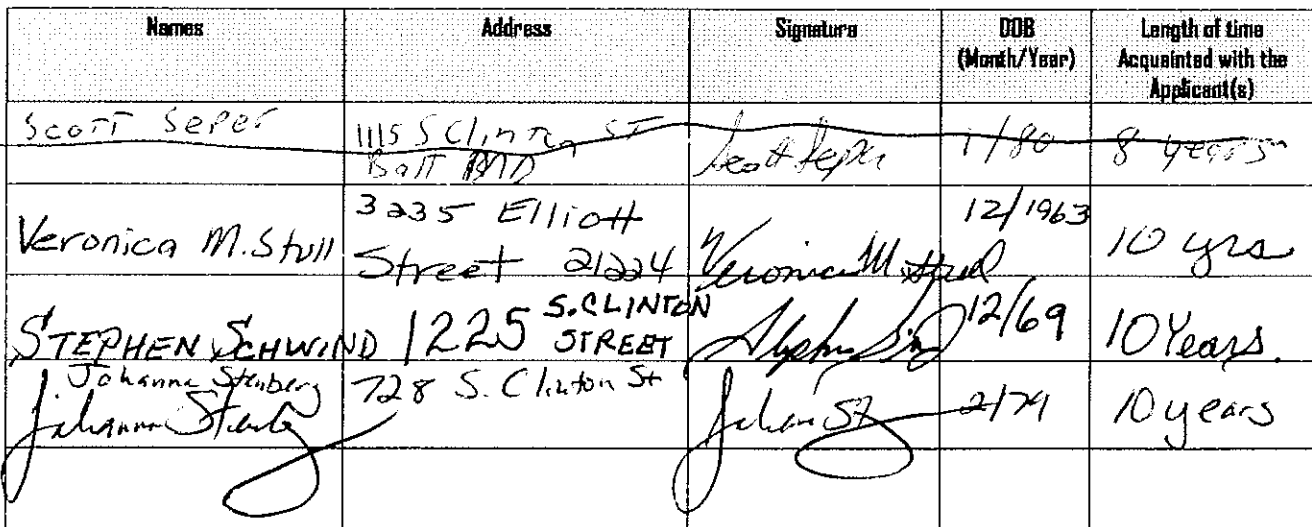 Names Address Signature DOB (Month/Year) Length of time Acquainted with the Applicant(s)
Scott Seper 1115 S Clinton ST Balt MD Scott Seper 1/80 8 years
Veronica M. Stull 3235 Elliott Street 21224 Veronica M Stull 12/1963 10 yrs
STEPHEN SCHWIND 1225 S. CLINTON STREET 12/69 10 Years.
Johanna Stenberg 728 S. Clinton St 2/79 10 years